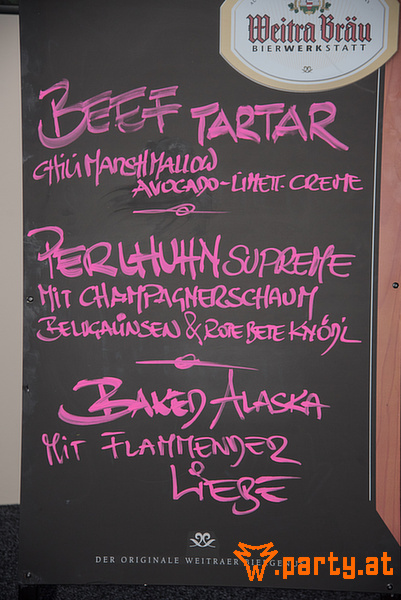 Weitra Bräu
BIERWERKSTATT
BEEF TARTAR
CHILI MARSHMALLOW
AVOCADO-LIMETT. CREME
PERLHUHN SUPREME
MIT CHAMPAGNERSCHAUM
BELUGALINSEN & ROTE BETE KNÖD'L
BAKED ALASKA
MIT FLAMMENDER
LIEBE
DER ORIGINALE WEITRAER BIERGEN
w.party.at